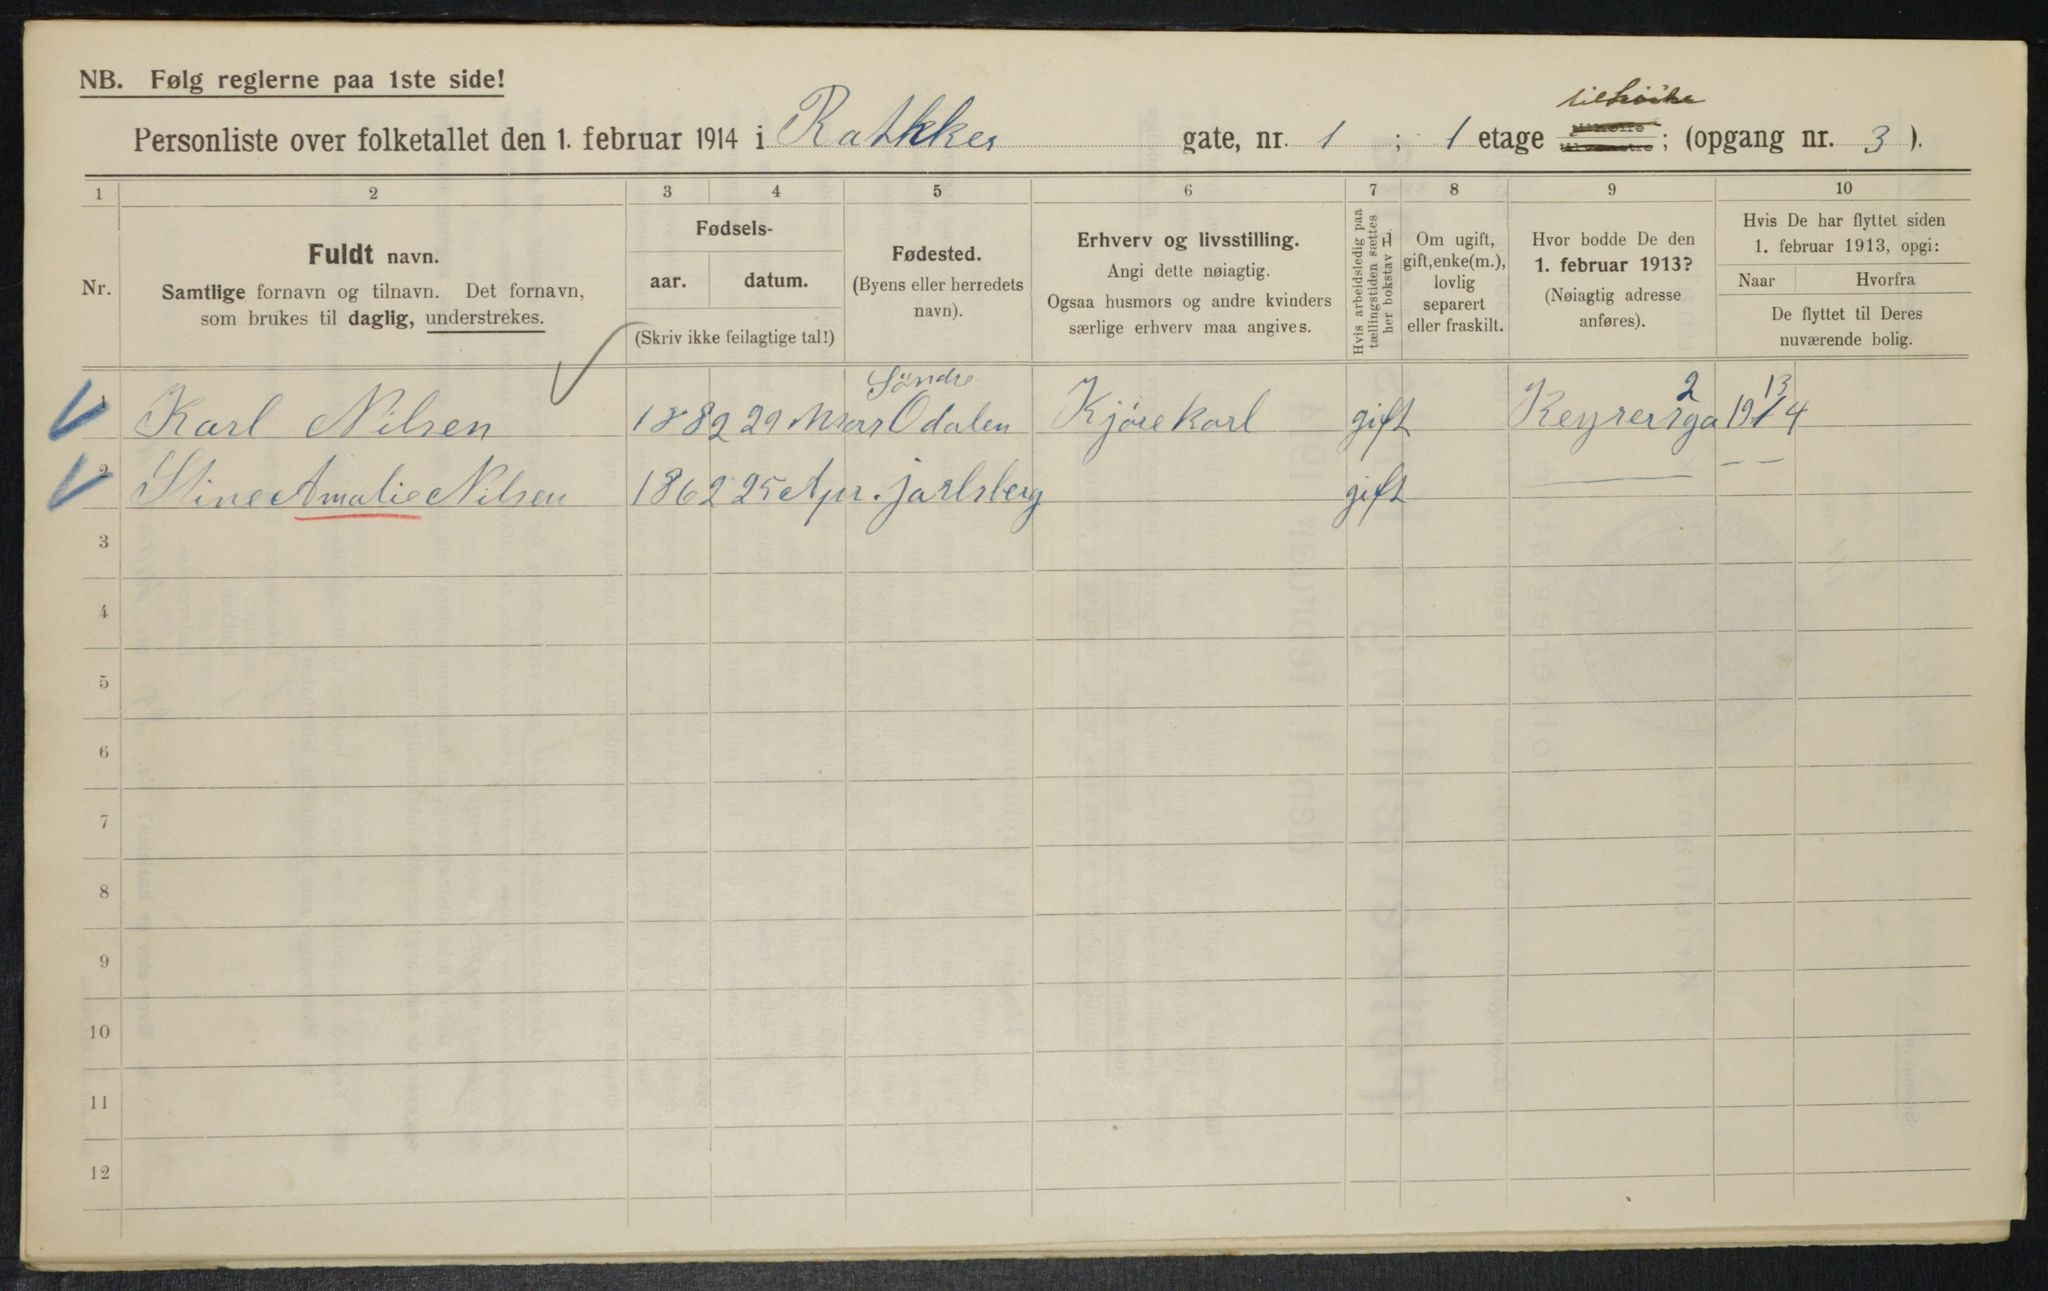 NB. Følg reglerne paa 1ste side!
Personliste over folketallet den 1. februar 1914 i Rathkes gate, nr. 1 ; 1 etage tilhøire ; (opgang nr. 3 ).
1 2 3 4 5 6 7 8 9 10
Nr.
Fuldt navn.
Samtlige fornavn og tilnavn. Det fornavn,
som brukes til daglig, understrekes.
Fødsels-
aar. datum.
(Skriv ikke feilagtige tal!)
Fødested.
(Byens eller herredets
navn).
Erhverv og livsstilling.
Angi dette nøiagtig.
Ogsaa husmors og andre kvinders
særlige erhverv maa angives.
Hvis arbeidsledig paa
tællingstiden sættes
her bokstav L.
Om ugift,
gift, enke(m.),
lovlig
separert
eller fraskilt.
Hvor bodde De den
1. februar 1913?
(Nøiagtig adresse
anføres).
Hvis De har flyttet siden
1. februar 1913, opgi:
Naar Hvorfra
De flyttet til Deres
nuværende bolig.
1 Karl Nilsen 1882 29 Mars Söndre Odalen Kjørekarl gift Keysersga 2 1913
2 Stine Amalie Nilsen 1862 25 Apr. jarlsberg gift — — —
3
4
5
6
7
8
9
10
11
12